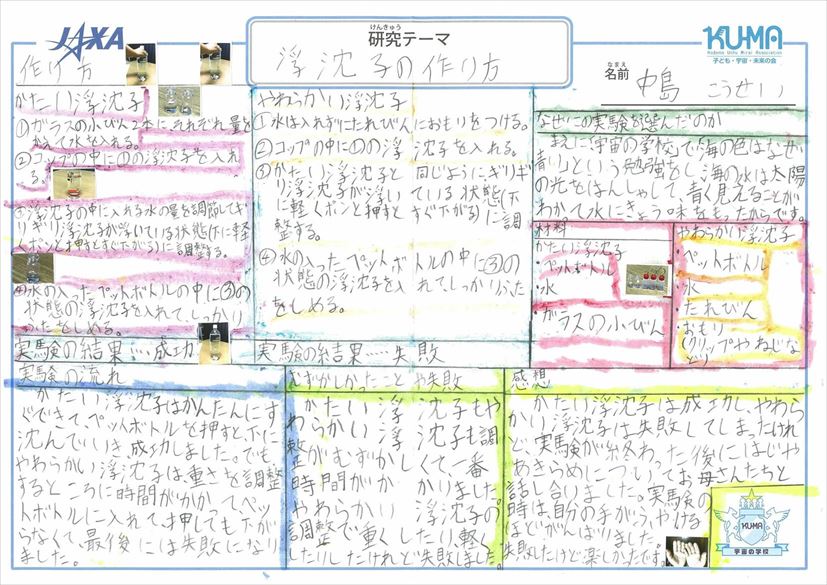 JAXA
けんきゅう
研究テーマ
浮沈子の作り方
KUMA
Kodomo Uchu Mirai Association
子ども・宇宙・未来の会
なまえ
名前 中島 こうせい
作り方
かたい浮沈子
①ガラスの小びん2本に、それぞれ量を
かえて水を入れる。
②コップの中に①の浮沈子を入れ
る。
③浮沈子の中に入れる水の量を調節してギ
リギリ浮沈子が浮いている状態(下に軽
くポンと押すとすぐ下がる)に調整する。
④水の入ったペットボトルの中に③の
状態の浮沈子を入れて、しっかり
ふたをしめる。
実験の結果・・・成功
やわらかい浮沈子
①水は入れずにたれびんにおもりをつける。
②コップの中に①の浮沈子を入れる。
③かたい浮沈子と同じように、ギリギ
リ浮沈子が浮いている状態(下
に軽くポンと押すとすぐ下がる)に調
整する。
④水の入ったペットボトルの中に③の
状態の浮沈子を入れて、しっかりふた
をしめる。
実験の結果・・・・失敗
なぜこの実験を選んだのか
まえに「宇宙の学校」で「海の色はなぜ
青い」という勉強をし、海の水は太陽
の光をはんしゃして、青く見えることが
わかて水にきょう味をもったからです。
材料
かたい浮沈子
・ペットボトル
・水
・ガラスの小びん
やわらかい浮沈子
・ペットボトル
・水
・たれびん
・おもり
(クリップやねじな
ど)
実験の流れ
かたい浮沈子はかんたんにす
ぐできて、ペットボトルを押すと、下に
沈んでいき、成功しました。でも、
やわらかい浮沈子は、重さを調整
するところに時間がかかってペッ
トボトルに入れて、押しても下が
らなくて、最後には失敗になり
ました。
むずかしかったことや失敗
かたい浮沈子もや
わらかい浮沈子も調
整がむずかしくて、一番
時間がかかりました。
やわらかい浮沈子の
調整で重くしたり、軽く
したりしたけれど失敗しました。
感想
かたい浮沈子は成功し、やわら
かい浮沈子は失敗してしまったけれ
ど、実験が終わった後にはじや
あきらめについってお母さんたちと
話し合りました。実験の
時は自分の手がふやける
ほどがんばりました。
失敗したけど楽しかったです。
KUMA
宇宙の学校